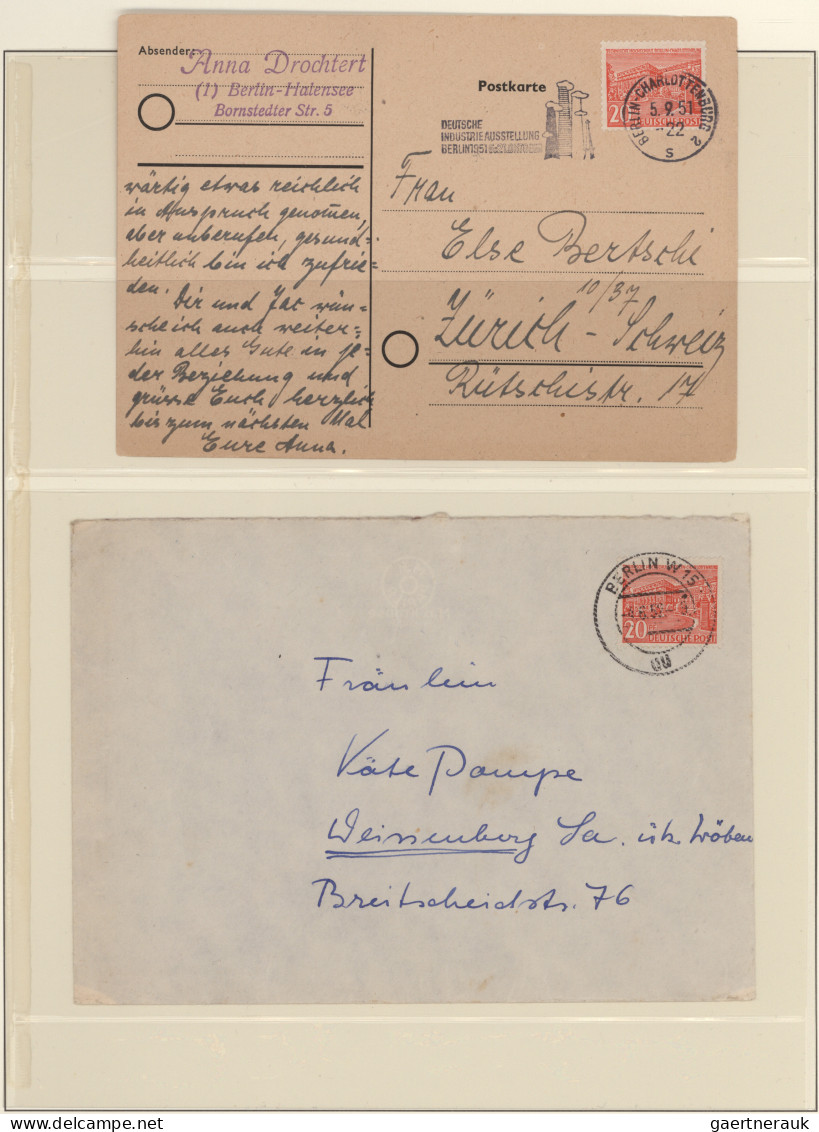 Absender:
Anna Drochtert
(1) Berlin-Halensee
Bornstedter Str. 5
Postkarte
DEUTSCHE
INDUSTRIEAUSSTELLUNG
BERLIN 1951
20
DEUTSCHE POST
BERLIN-CHARLOTTENBURG 2
5.9.51
-22
s
wärtig etwas reichlich
in Anspruch genom̅en,
aber unberufen, gesund=
heitlich bin ich zufrie=
den.
Dir und Jac wün=
sche ich auch weiter=
hin alles Gute in je=
der Beziehung und
grüsse Euch herzlich
bis zum nächsten Mal
Eure Anna.
Frau
Else Bertschi
10/37
Zürich - Schweiz
Rütschistr. 17
BERLIN W 15
20
DEUTSCHE POST
Fräulein
Käte Pampe
Weissenberg Sa. üb. Löbau
Breitscheidstr. 76
gaertnerauk